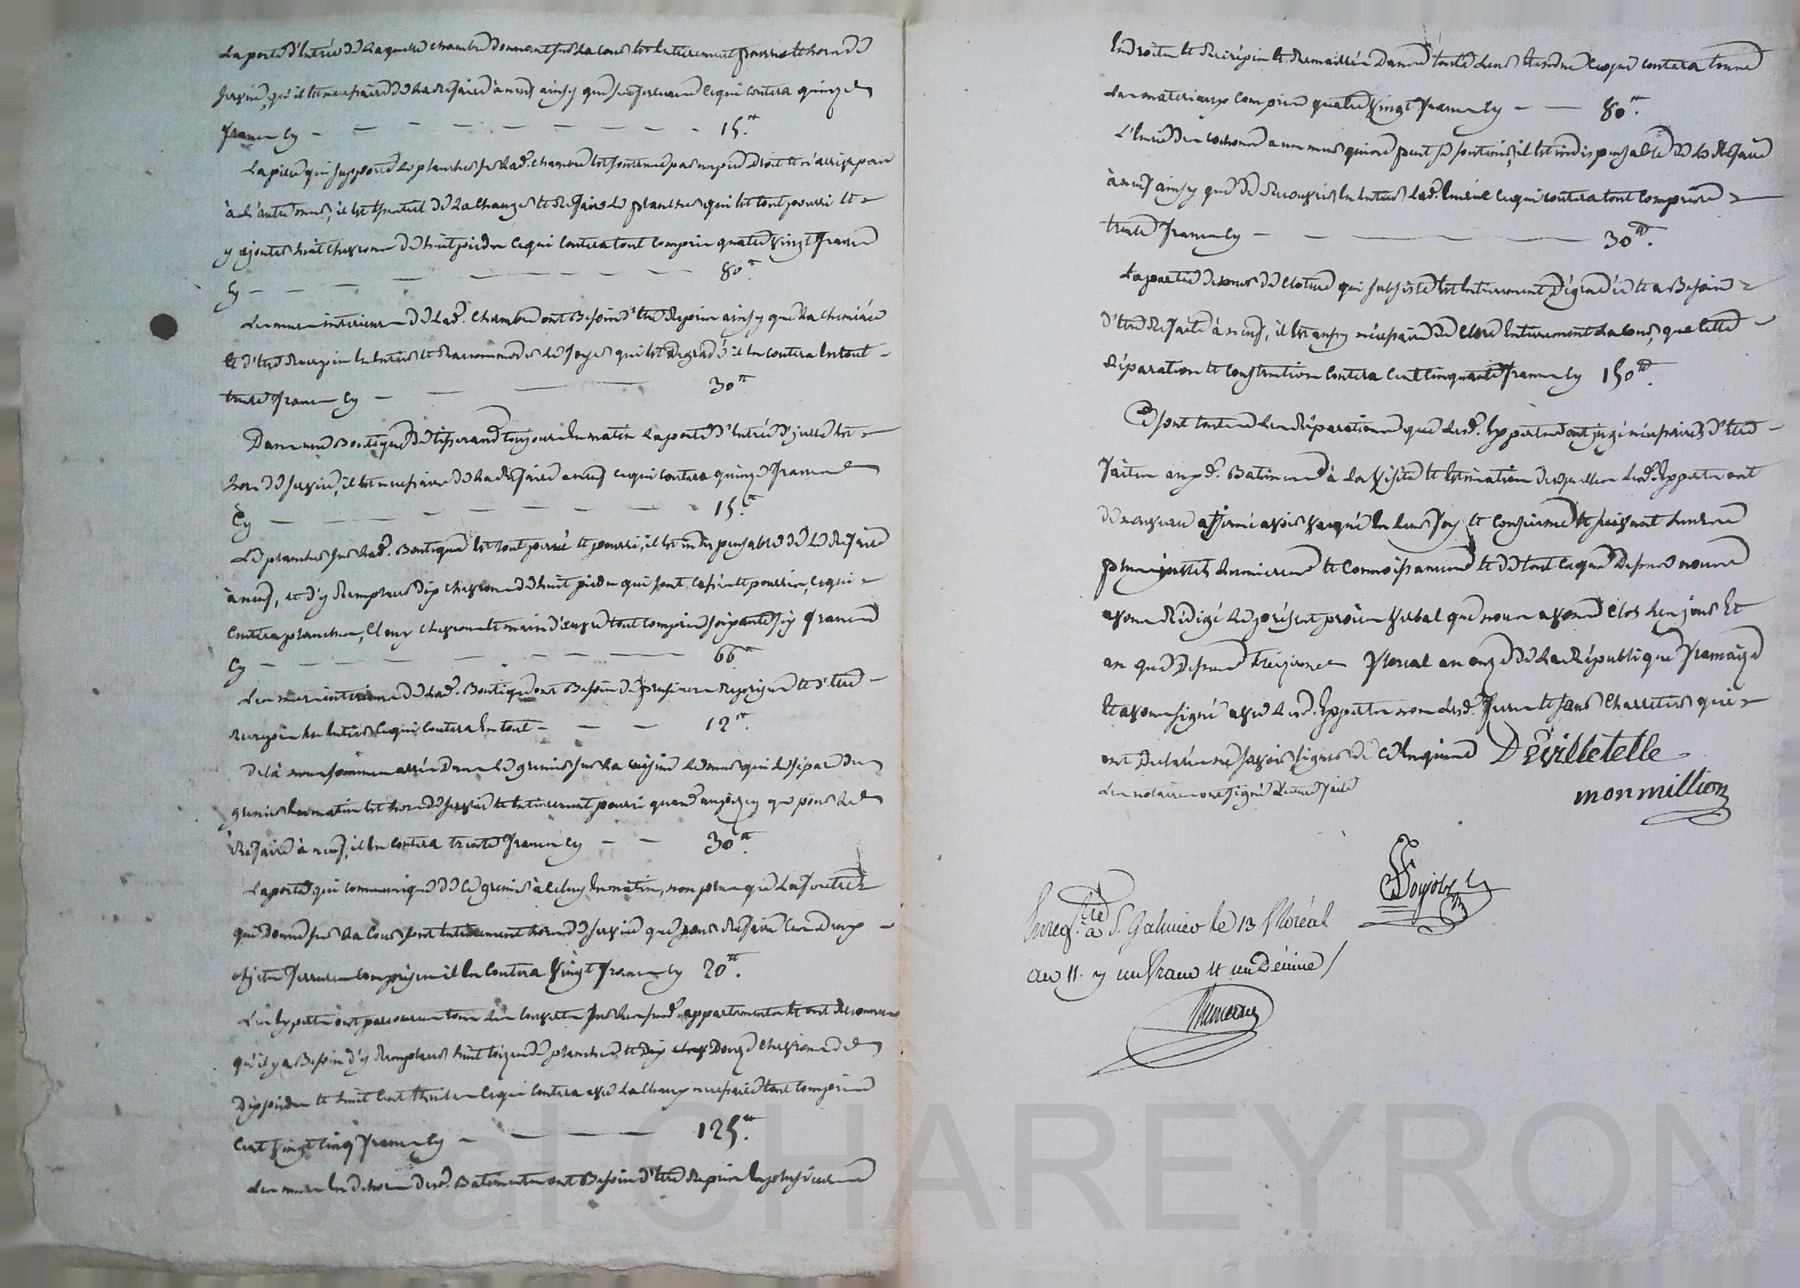 La porte d'Entrée de laquelle chambre donnant sur la Cour est Entierement pourrie et hors de
service, qu'il est necessaire de la refaire à neuf ainsy que sa serrure Cequi contera quinze
francs Cy - - - - - - - - 15.tt
La piece qui supporte le plancher sur lad. chambre est soutenue par un pied droit et n'arrive pas
à l'autre mur, il est de la changer et refaire le plancher qui est tout pourri et
y ajouter huit chevrons de huit pieds Cequi Contera tout Compris quatre vingt francs
Cy - - - - - - - 80.tt
Les murs interieurs de lad. Chambre ont Besoin d'être Repris ainsy que la cheminée
et d'être recrepis En Entier et Raccommoder le foyer qui est Degradé il En Contera En tout
trente francs Cy - - - 30.tt
Dans une Boutique de tisserand toujours En matin La porte d'Entrée d'ycelle est
hors de service, il est necessaire de la refaire a neuf cequi contera quinze francs
Cy - - - - - - - 15.tt
Le plancher sur lad. Boutique est tout percé et pourri, il est indispensable de le Refaire
à neuf, et d'y Remplacer dix chevrons de huit pieds qui sont cassés et pourris, Cequi
Contera planches, Cloux chevrons et main d'œuvre tout compris soixante six francs
Cy - - - - - - - 66.tt
Les murs interieurs de lad. Boutique ont Besoin de plusieurs Reprises et d'être
recrepis En Entier Cequi Contera En tout - - - 12.tt
De là nous sommes allés Dans le grenier sur la cuisine le mur qui le separe du
grenier En matin est hors de service et Entierement pourri que pour le
Refaire à neuf, il En contera trente francs Cy - - 30.tt
La porte qui communique de ce grenier à celuy En matin, non plus que La fenêtre
qui Donne sur la Cour sont Entierement hors de service que pour Refaire Ces deux
objets serrures comprises il En Contera Vingt francs Cy 20.tt
Les Experts ont parcouru tous les Couverts sur les susd. appartements et ont reconnu
qu'il y a Besoin d'y Remplacer huit toises de plancher et Douze chevrons de
Dix pieds et huit Cent thuiles Cequi Contera avec la chaux necessaire tout compris
Cent Vingt Cinq francs Cy - - - 125.tt
Les murs En dehors desd. Batiments ont Besoin d'être Repris En plusieurs
Endroits et Recrépis et Remaillés Dans toute Leur Etendue Cequi Contera tous
Les materiaux Compris quatre Vingt francs Cy - - 80.tt
L'Ecurie des cochons a un mur qui ne peut se soutenir, il est indispensable de le Refaire
à neuf ainsy que de Recouvrir En Entier lad. Ecurie Cequi contera tout Compris
trente francs Cy - - - - - 30.tt
La partie du mur de cloture qui subsiste est Entierement Dégradée et a Besoin
d'être Refaite à neuf, il est aussy nécessaire de Clore Entierement La Cour, que cette
Réparation et Construction Contera Cent Cinquante francs Cy 150.tt
Ce sont toutes les Réparations que Lesd. Experts ont jugé nécessaires d'être
faites auxd. Batiments à la Visite et Estimation desquelles Lesd. Experts ont
de nouveau affirmé avoir vacqué En leur foy et Conscience et suivant leurs
plus justes Lumieres et Connoissances et de tout Ce que Dessus nous
avons Rédigé Le présent procès Verbal que nous avons Clos Les jour Et
an que Dessus floreal an onze de la République française
Et avons signé avec Lesd. Experts non Lesd. ferme et Jean Charretier qui
ont Declaré ne savoir signer de ce Enquis Devilletelle
Les notaires ont signé La minute
monmillion
Enregtré à St Galmier le 13 floréal
an 11. un franc et un Décime
Pascal CHAREYRON